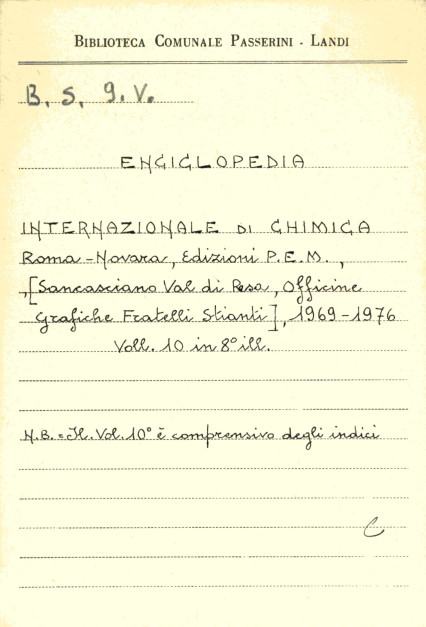 BIBLIOTECA COMUNALE PASSERINI - LANDI
B. S. 9. V.
ENCICLOPEDIA
INTERNAZIONALE DI CHIMICA
Roma - Novara, Edizioni P.E.M.,
,[Sancasciano Val di Pesa, Officine
Grafiche Fratelli Stianti], 1969-1976
Voll. 10 in 8° ill.
N.B. = Il. Vol. 10° è comprensivo degli indici
C